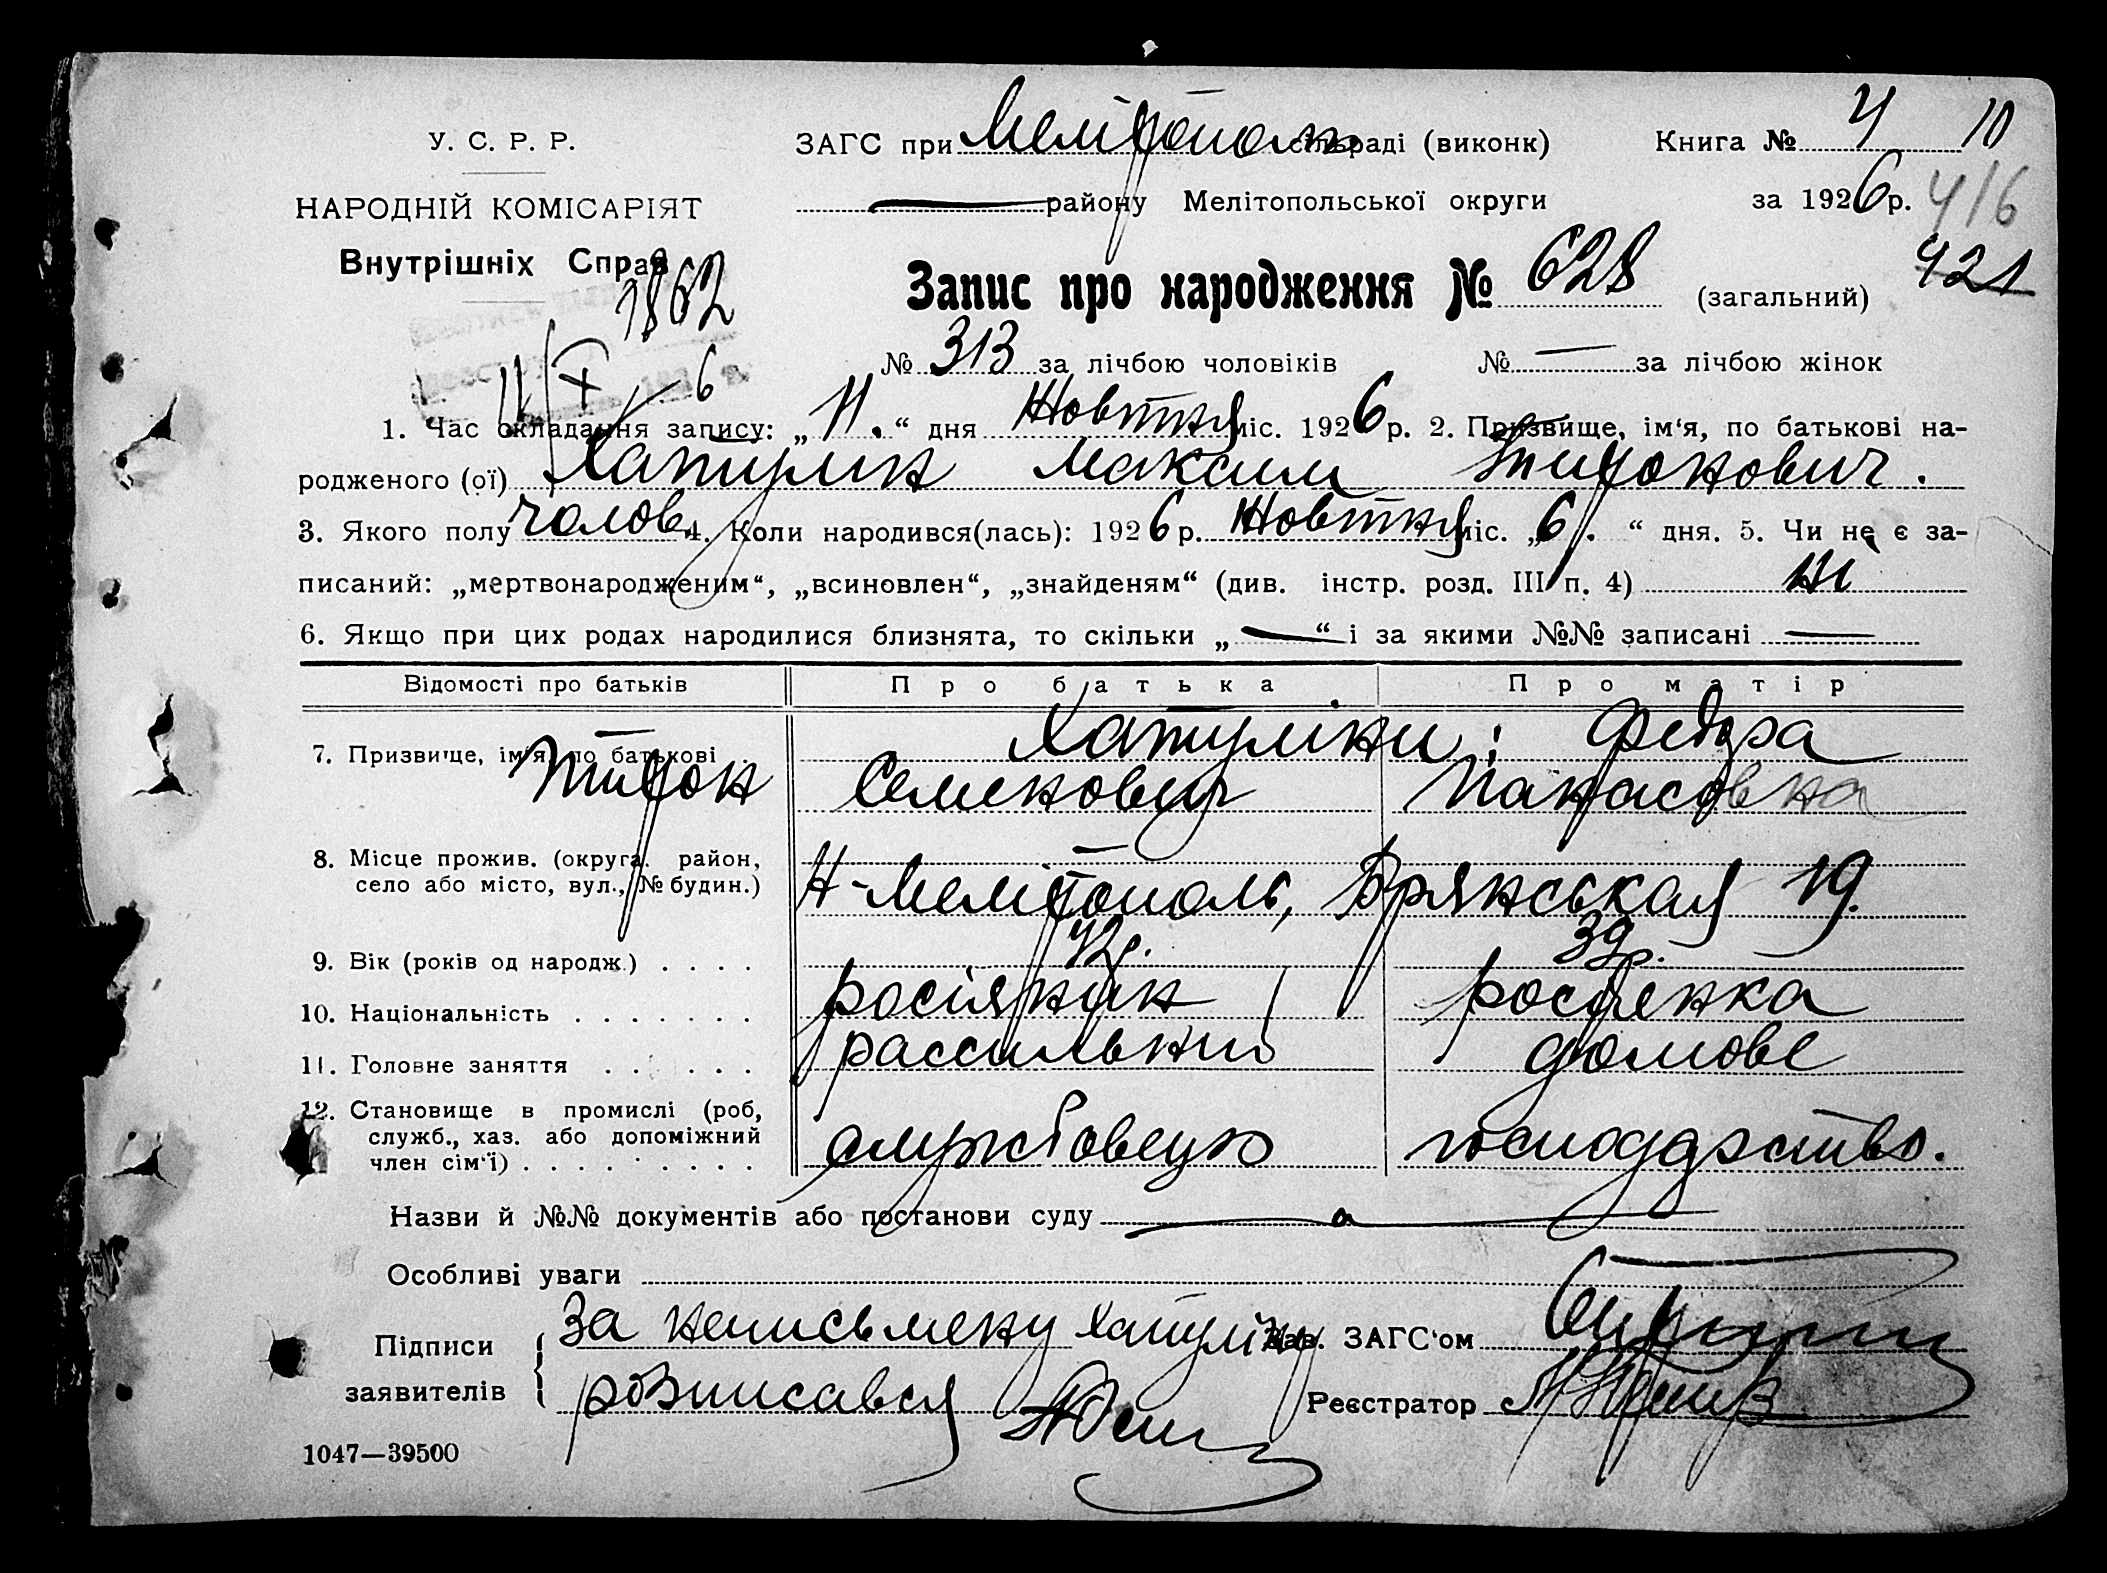 У. С. Р. Р.
НАРОДНІЙ КОМІСАРІЯТ
Внутрішніх Справ
1862
11/X 6
ЗАГС при Мелітополь сільраді (виконк) Книга № 4 10
— району Мелітопольської округи за 1926 р. 416
Запис про народження № 628 (загальний) 421
№ 313 за лічбою чоловіків № — за лічбою жінок
1. Час складання запису: „11.“ дня Жовтня міс. 1926 р. 2. Призвище, ім‘я, по батькові на-
родженого (ої) Хатулин Максим Тихонович.
3. Якого полу чолов. 4. Коли народився(лась): 1926 р. Жовтня міс. „6.“ дня. 5. Чи не є за-
писаний: „мертвонародженим“, „всиновлен“, „знайденям“ (див. інстр. розд. III п. 4) ні
6. Якщо при цих родах народилися близнята, то скільки „—“ і за якими №№ записані —
Відомості про батьків Про батька Про матір
7. Призвище, ім‘я, по батькові Хатуліни: Федора
Тихон Семенович Панасовна
8. Місце прожив. (округа, район,
село або місто, вул., № будин.) Н-Мелітополь, Брянськая 19.
9. Вік (років од народж.) . . . . 42р. 39р.
10. Національність . . . . . . . росіянин росіянка
11. Головне заняття . . . . . . рассильний домове
12. Становище в промислі (роб,
служб., хаз. або допоміжний
член сім‘ї) . . . . . . . . . службовецю господарство.
Назви й №№ документів або постанови суду —
Особливі уваги
Підписи заявителів За неписьмену Хатуліну Зав. ЗАГС‘ом
розписався Реєстратор
1047—39500